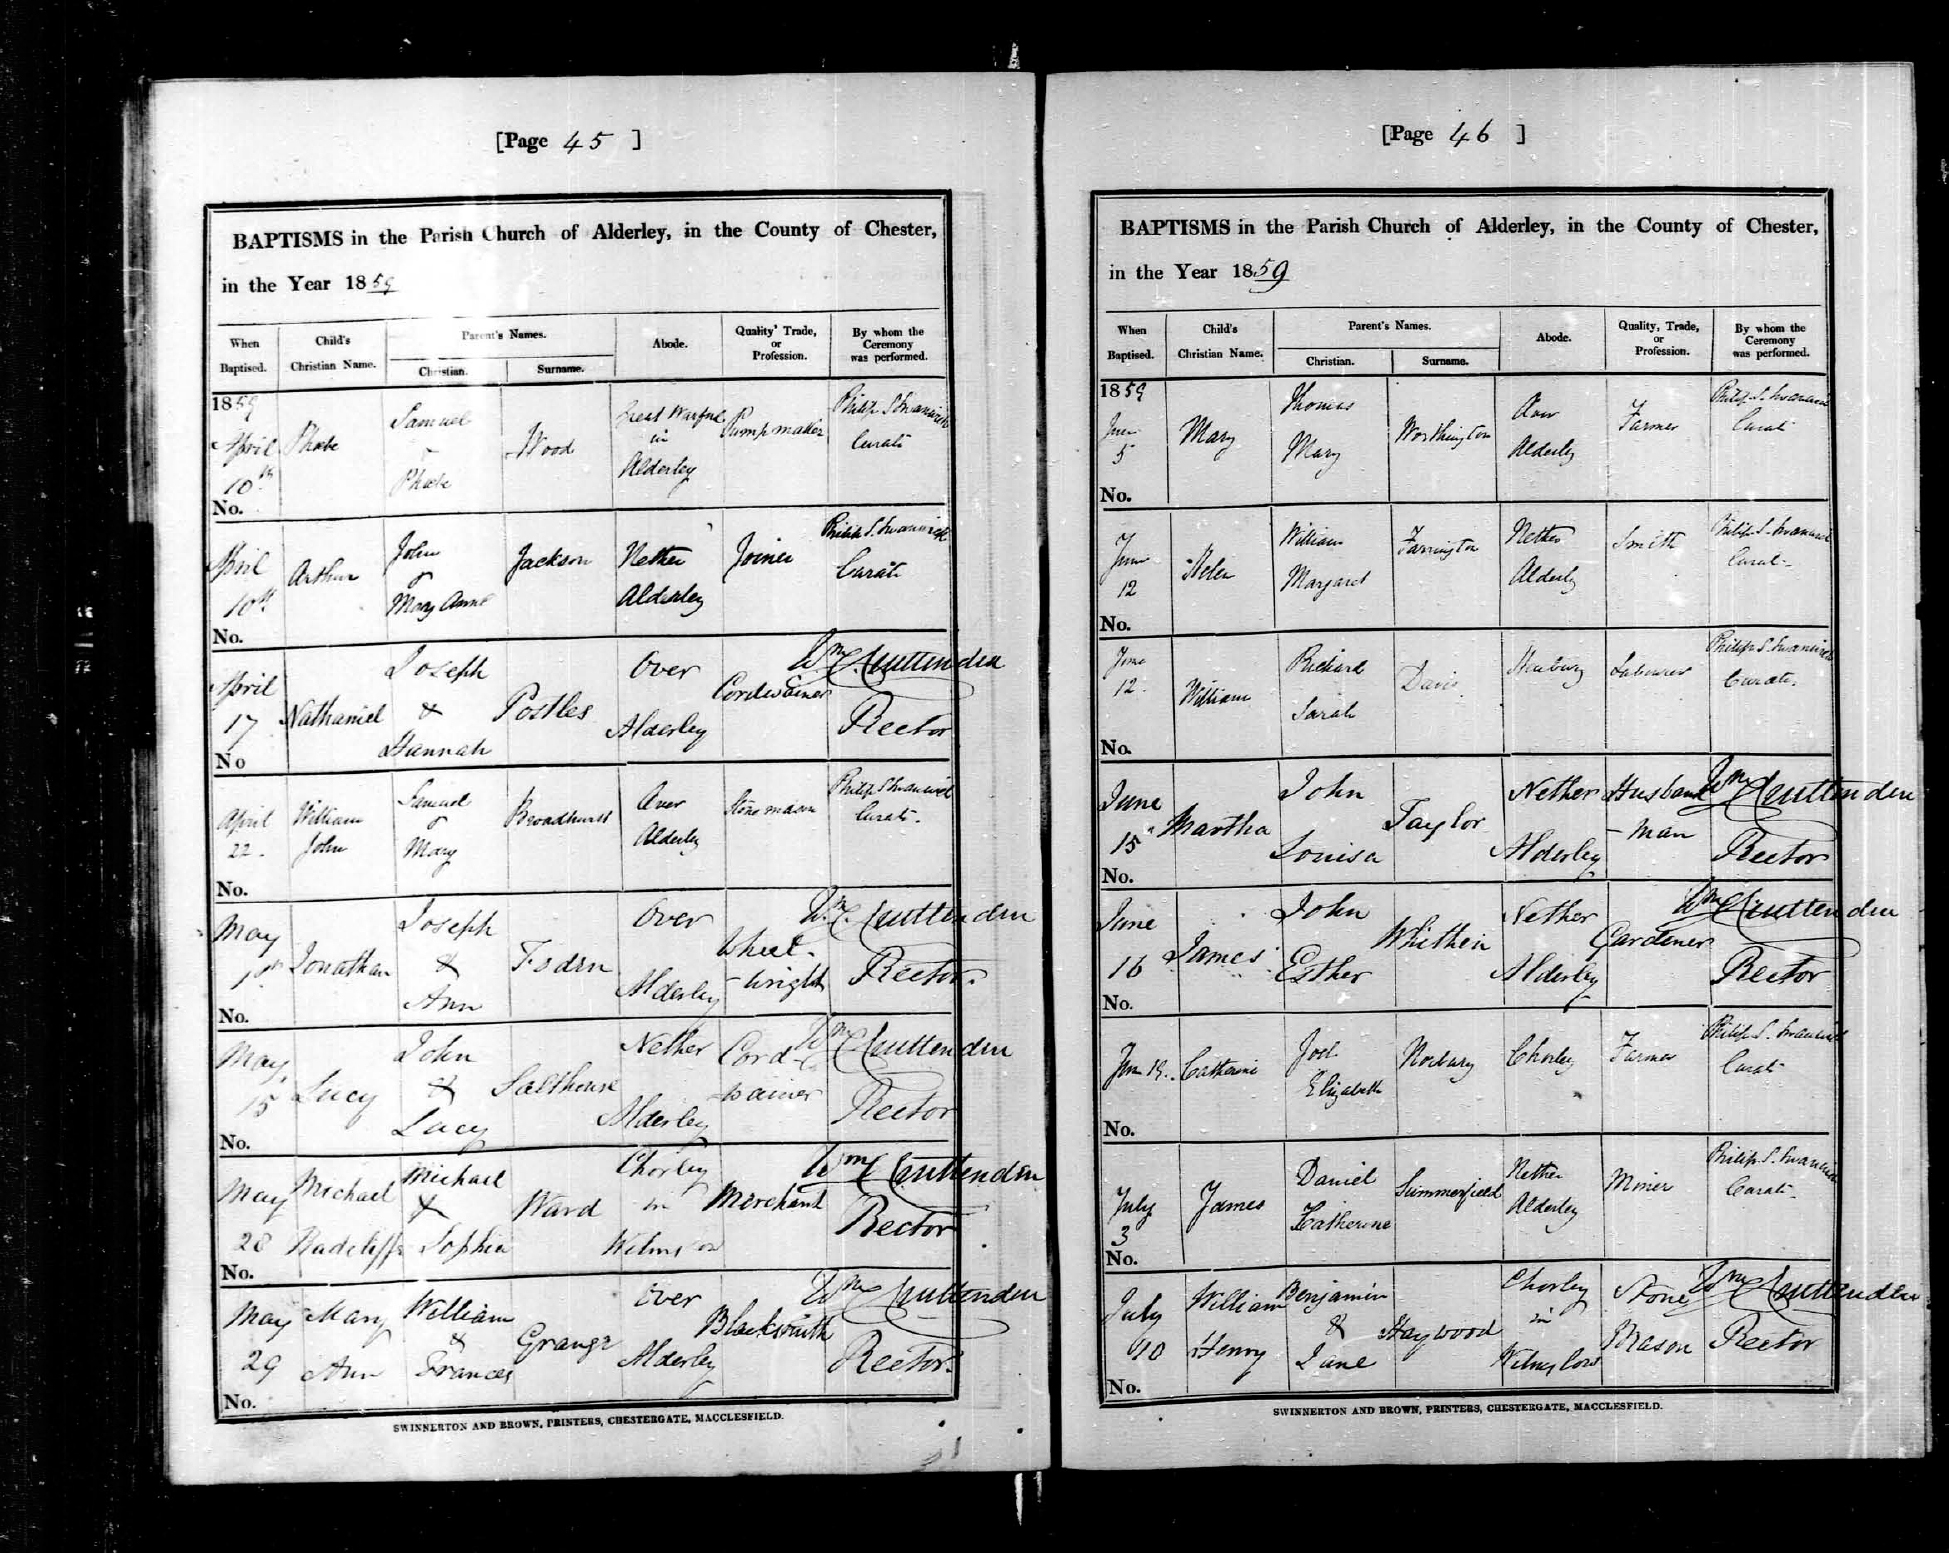 [Page 45 ]
BAPTISMS in the Parish Church of Alderley, in the County of Chester,
in the Year 1859
When Baptised.
Child's Christian Name.
Parent's Names.
Christian.
Surname.
Abode.
Quality' Trade, or Profession.
By whom the Ceremony was performed.
1859
April 10th
Phœbe
Samuel & Phœbe
Wood
Great Warford in Alderley
Pumpmaker
Philip S. Swanwick Curate
No.
April 10th
Arthur
John & Mary Anne
Jackson
Nether Alderley
Joiner
Philip S. Swanwick Curate
No.
April 17
Nathaniel
Joseph & Hannah
Postles
Over Alderley
Cordwainer
Wm Cruttenden Rector
No
April 22.
William John
Samuel & Mary
Broadhurst
Over Alderley
Stone mason
Philip S. Swanwick Curate.
No.
May 1st
Jonathan
Joseph & Ann
Foden
Over Alderley
Wheel-wright
Wm Cruttenden Rector.
No.
May 15
Lucy
John & Lucy
Salthouse
Nether Alderley
Cord-wainer
Wm Cruttenden Rector
No.
May 28
Michael Radcliffe
Michael & Sophia
Ward
Chorley in Wilmslow
Merchant
Wm Cruttenden Rector
No.
May 29
Mary Ann
William & Frances
Grange
Over Alderley
Blacksmith
Wm Cruttenden Rector.
No.
SWINNERTON AND BROWN, PRINTERS, CHESTERGATE, MACCLESFIELD.
[Page 46 ]
BAPTISMS in the Parish Church of Alderley, in the County of Chester,
in the Year 1859
When Baptised.
Child's Christian Name.
Parent's Names.
Christian.
Surname.
Abode.
Quality, Trade, or Profession.
By whom the Ceremony was performed.
1859
June 5
Mary
Thomas Mary
Worthington
Over Alderley
Farmer
Philip S. Swanwick Curate
No.
June 12
Helen
William Margaret
Farrington
Nether Alderley
Smith
Philip S. Swanwick Curate
No.
June 12.
William
Richard Sarah
Davis
Labourer
Philip S. Swanwick Curate.
No.
June 15
Martha
John Louisa
Taylor
Nether Alderley
Husband-man
Wm Cruttenden Rector
No.
June 16
James
John Esther
Nether Alderley
Gardener
Wm Cruttenden Rector
No.
June 19.
Catherine
Joel Elizabeth
Norbury
Chorley
Farmer
Philip S. Swanwick Curate
No.
July 3
James
Daniel Katherine
Summerfield
Nether Alderley
Miner
Philip S. Swanwick Curate
No.
July 10
William Henry
Benjamin & Jane
Haywood
Chorley in Wilmslow
Stone Mason
Wm Cruttenden Rector
No.
SWINNERTON AND BROWN, PRINTERS, CHESTERGATE, MACCLESFIELD.